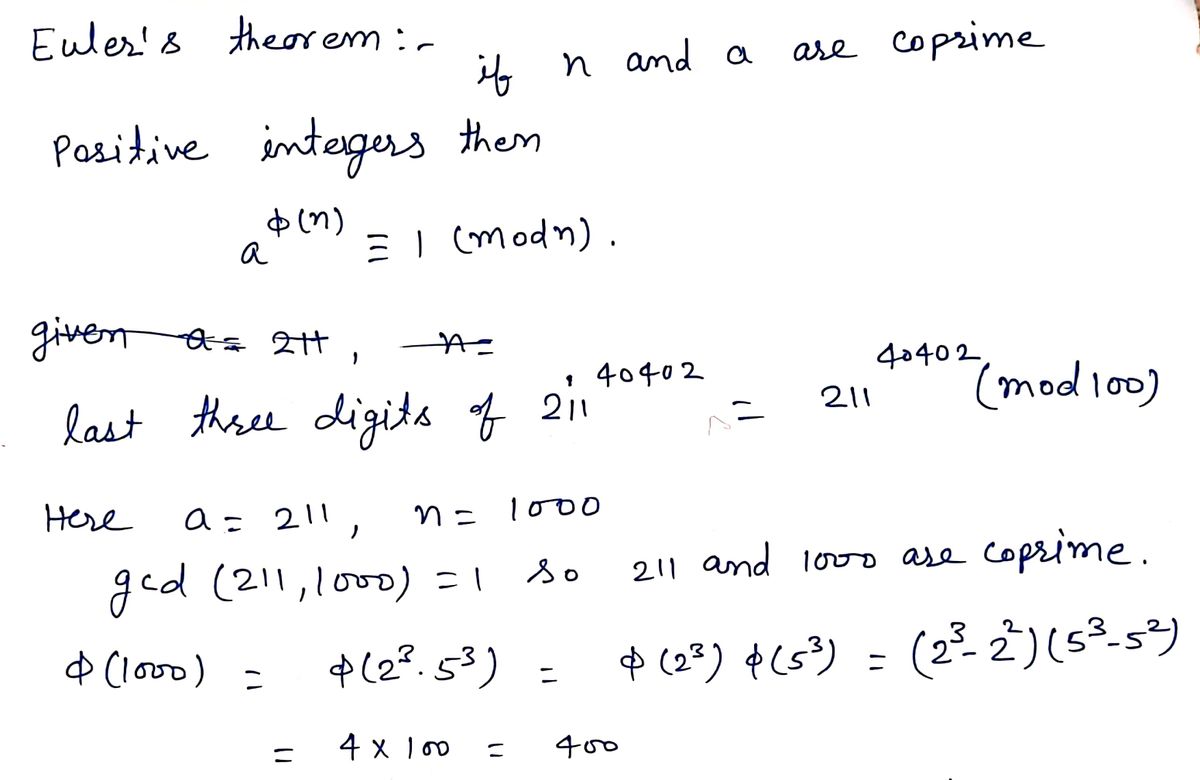 Euler's theorem :- if n and a are coprime
Positive intergers then
a^ϕ(n) ≡ 1 (mod n) .
given a = 211 , n =
last three digits of 211^40402 = 211^40402 (mod 100)
Here a = 211 , n = 1000
gcd (211, 1000) = 1 so 211 and 1000 are coprime .
ϕ(1000) = ϕ(2³. 5³) = ϕ(2³) ϕ(5³) = (2³- 2²)(5³-5²)
= 4 x 100 = 400